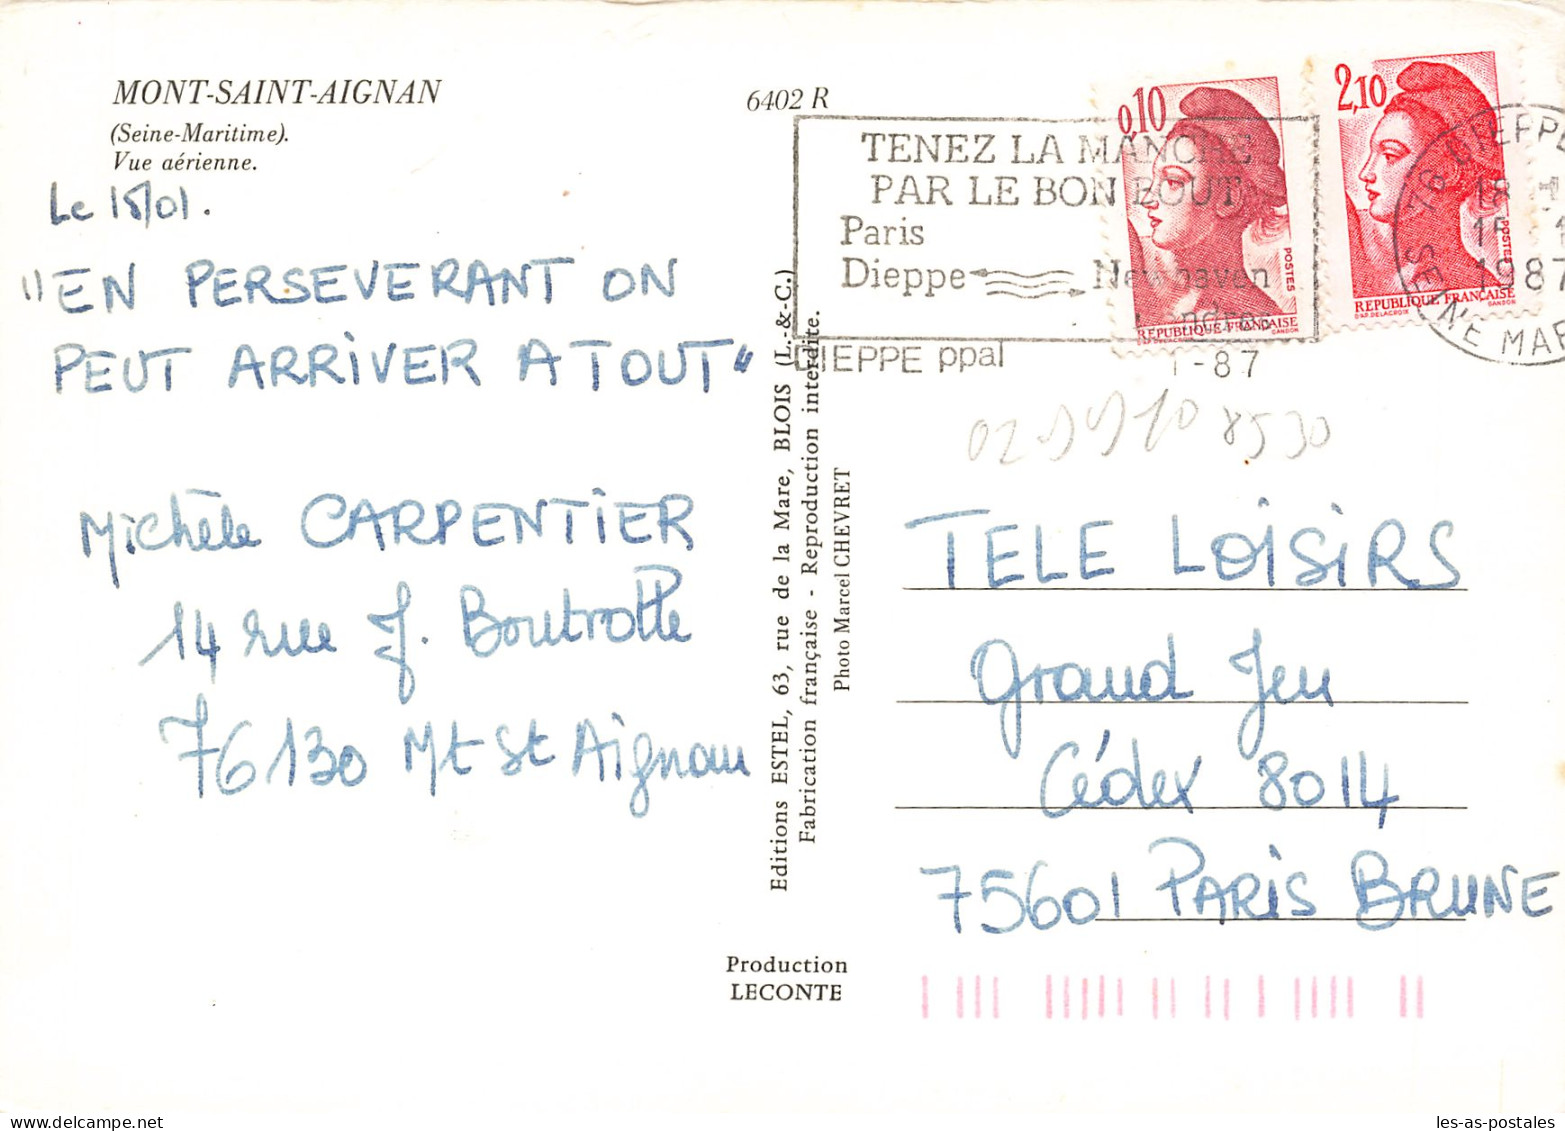 MONT-SAINT-AIGNAN
(Seine-Maritime).
Vue aérienne.
6402 R
Le 15/01.
"EN PERSEVERANT ON
PEUT ARRIVER A TOUT"
Michèle CARPENTIER
14 rue J. Boutrolle
76130 Mt St Aignan
Editions ESTEL, 63, rue de la Mare, BLOIS (L.-&-C.)
Fabrication française - Reproduction interdite.
Photo Marcel CHEVRET
Production
LECONTE
TENEZ LA MANCHE
PAR LE BON BOUT
Paris
Dieppe Newhaven
Londres
DIEPPE ppal
1-87
0,10
POSTES
REPUBLIQUE FRANÇAISE
D'AP. DELACROIX GANDON
2,10
POSTES
REPUBLIQUE FRANÇAISE
D'AP. DELACROIX GANDON
76 DIEPPE
18
1987
SEINE MAR
TELE LOISIRS
Grand Jeu
Cédex 8014
75601 PARIS BRUNE
les-as-postales